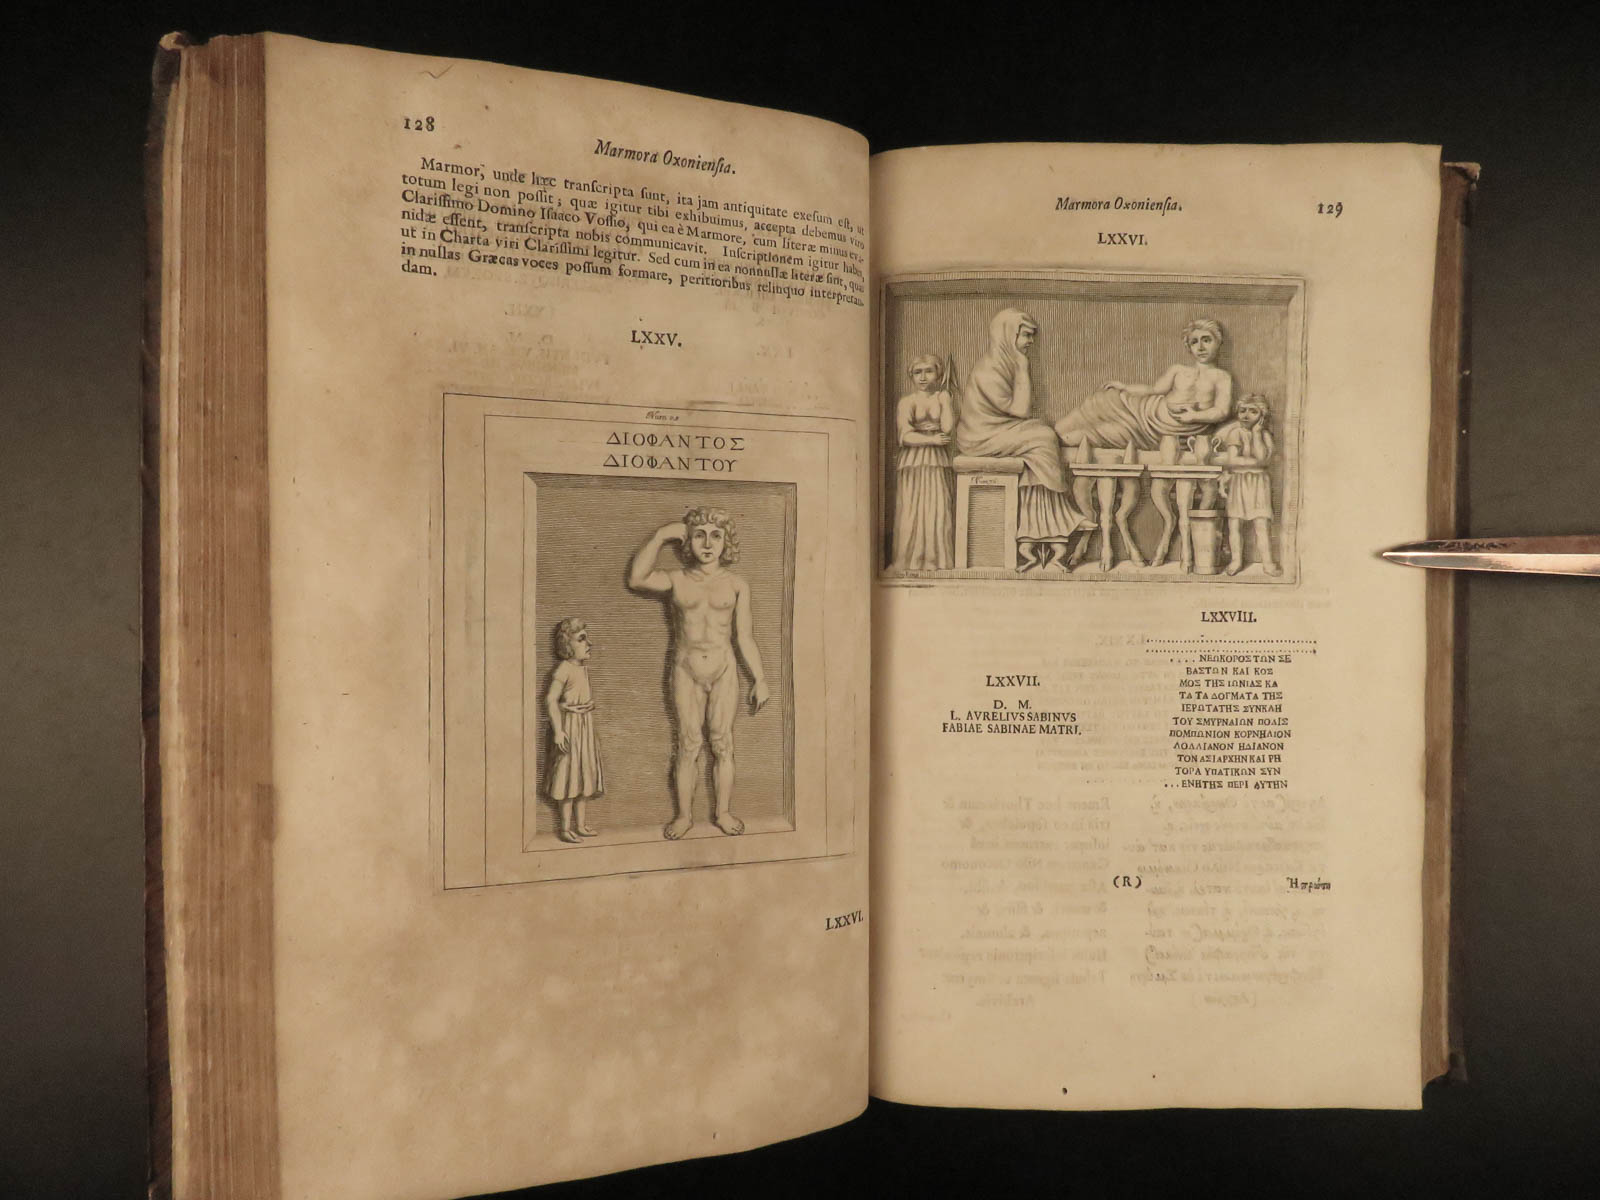 128
Marmora Oxonienſia.
Marmor, unde hæc tranſcripta ſunt, ita jam antiquitate exeſum eſt, ut
totum legi non poſſit; quæ igitur tibi exhibuimus, accepta debemus viro
Clariſſimo Domino Iſaaco Voſſio, qui ea è Marmore, cum literæ minus eva-
nidæ eſſent, tranſcripta nobis communicavit. Inſcriptionem igitur habes,
ut in Charta viri Clariſſimi legitur. Sed cum in ea nonnullæ literæ ſint, quas
in nullas Græcas voces poſſum formare, peritioribus relinquo interpretan-
dam.
LXXV.
ΔΙΟΦΑΝΤΟΣ
ΔΙΟΦΑΝΤΟΥ
LXXVI.
Marmora Oxonienſia.
129
LXXVI.
LXXVII.
D. M.
L. AVRELIVS SABINVS
FABIAE SABINAE MATRI.
LXXVIII.
.... ΝΕΩΚΟΡΟΣ ΤΩΝ ΣΕ
ΒΑΣΤΩΝ ΚΑΙ ΚΟΣ
ΜΟΣ ΤΗΣ ΙΩΝΙΑΣ ΚΑ
ΤΑ ΤΑ ΔΟΓΜΑΤΑ ΤΗΣ
ΙΕΡΩΤΑΤΗΣ ΣΥΝΚΛΗ
ΤΟΥ ΣΜΥΡΝΑΙΩΝ ΠΟΛΙΣ
ΠΟΜΠΩΝΙΟΝ ΚΟΡΝΗΛΙΟΝ
ΛΟΛΛΙΑΝΟΝ ΗΔΙΑΝΟΝ
ΤΟΝ ΑΣΙΑΡΧΗΝ ΚΑΙ ΡΗ
ΤΟΡΑ ΥΠΑΤΙΚΩΝ ΣΥΝ
... ΕΝΗΤΗΣ ΠΕΡΙ ΑΥΤΗΝ
(R)
Ἡ πρώτη